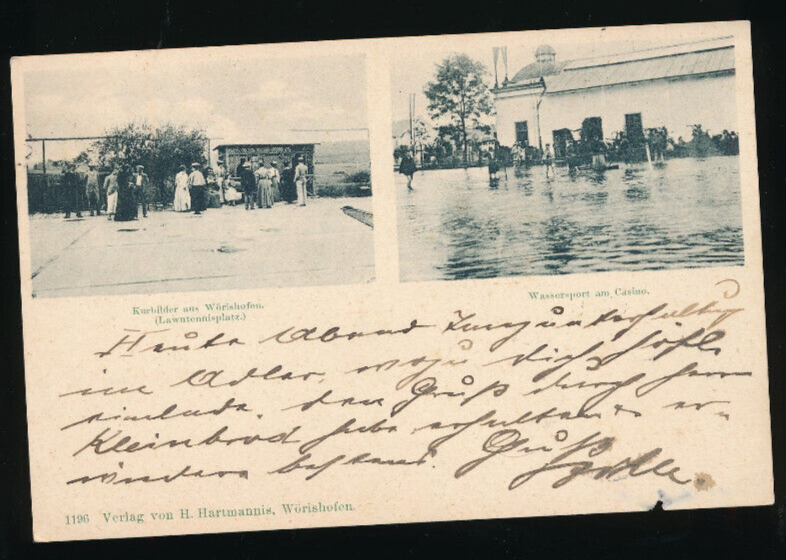 Kurbilder aus Wörishofen.
(Lawntennisplatz.)
Wassersport am Casino.
Heute Abend
im Adler, wozu dich höfl.
einlade. den Gruß durch Herrn
Kleinbrod habe erhalten u. er-
widere bestens. Gruß
1196 Verlag von H. Hartmannis, Wörishofen.